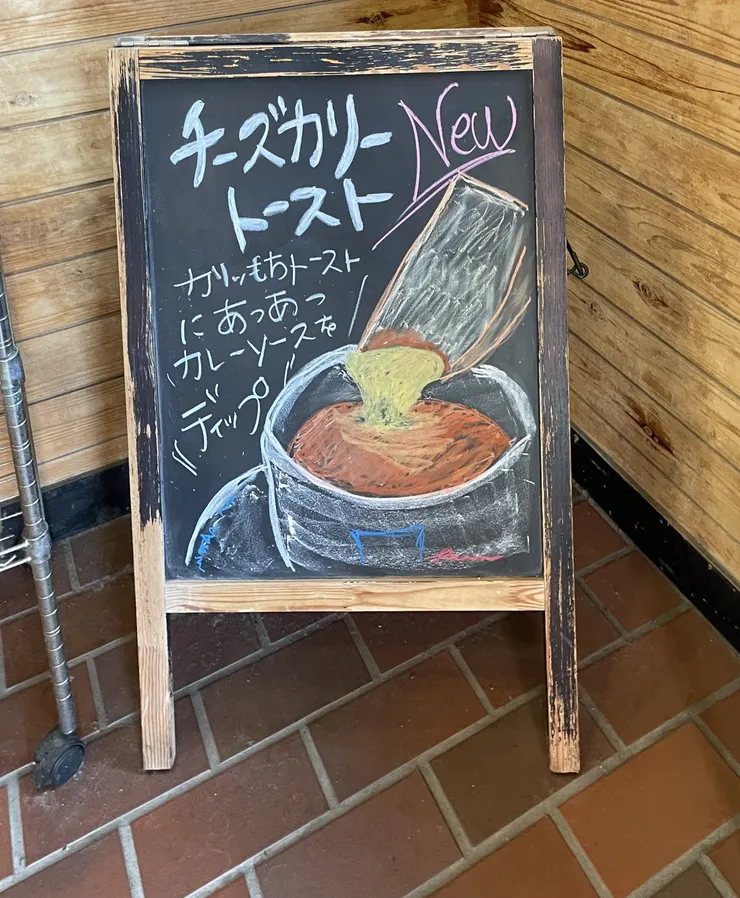 チーズカリー
トースト
New
カリッもちトースト
にあっあつ
カレーソースを
ディップ